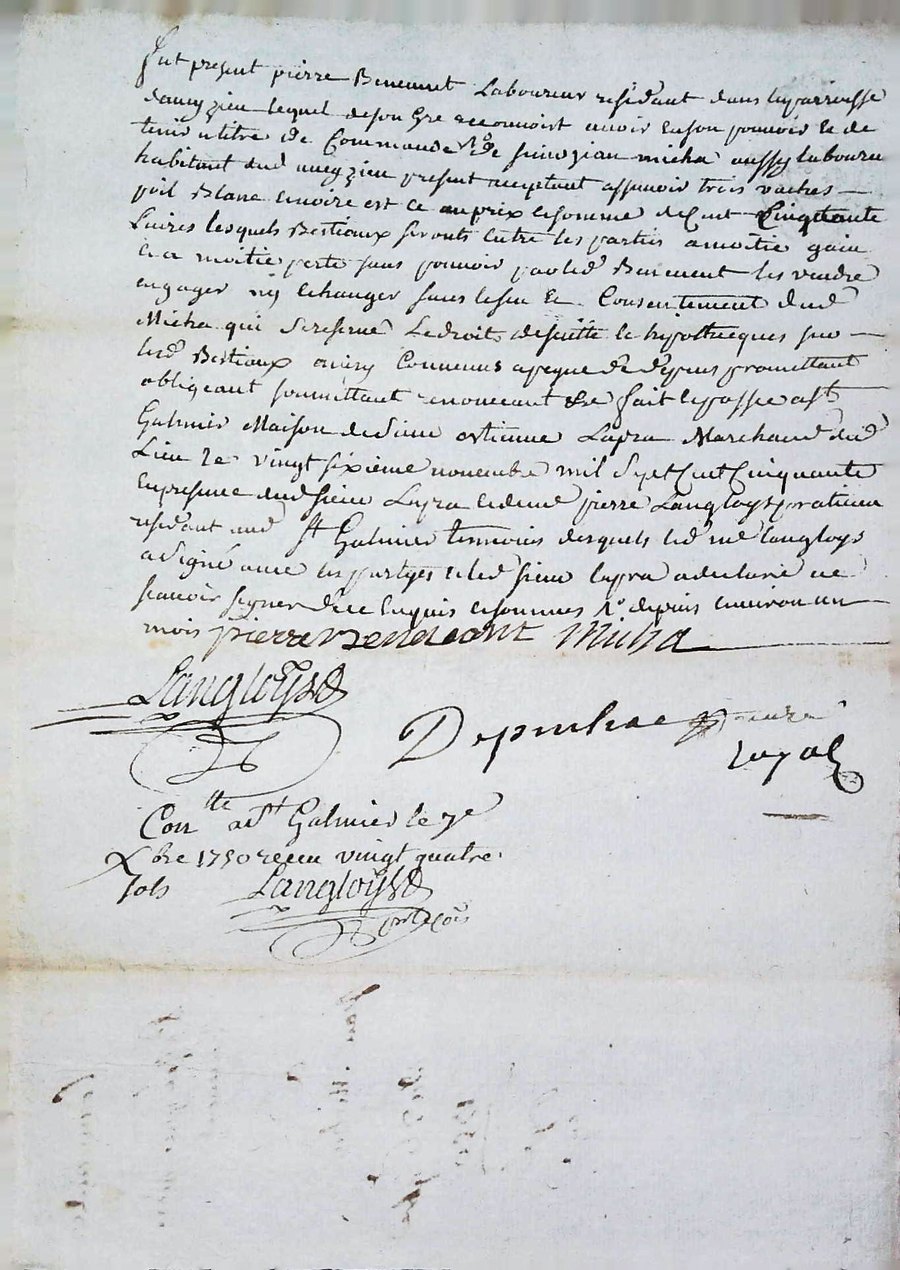 fut present pierre Benement Laboureur residant dans la parroisse
daveyzieu lequel de son gre reconnoist avoir en son pouvoir et de
tenir a titre de Commande de micha aussy laboureur
habitant dud aveyzieu present acceptant assavoir trois vaches
poil Blanc encoire est ce au prix et somme de Cent Cinquante
Livres lesquels Bestiaux seronts entre les parties a moitié gain
et a moitié perte sans pouvoir par led Benement les vendre
engager ny Echanger sans le sceu et Consentement dud
Micha qui se reserve Le droit de suitte et hypotheques sur
lesd Bestiaux ainsy Convenus a peyne de depens promettant
obligeant soumettant renonceant &c fait et passé a St
Galmier Maison de Sieur etienne Lapra Marchand dud
Lieu Le vingt sixieme novembre mil Sept Cent Cinquante
En presence dud sieur Lapra et de me pierre Langloys praticien
residant aud St Galmier temoins desquels led me langloys
a signé avec les partyes et led sieur lapra a declaré ne
scavoir signer de ce Enquis et sommes depuis environ un
mois pierre Benement Micha
Langloys
Depinhac
Con lle a St Galmier le 7e
Xbre 1750 receu vingt quatre
sols Langloys